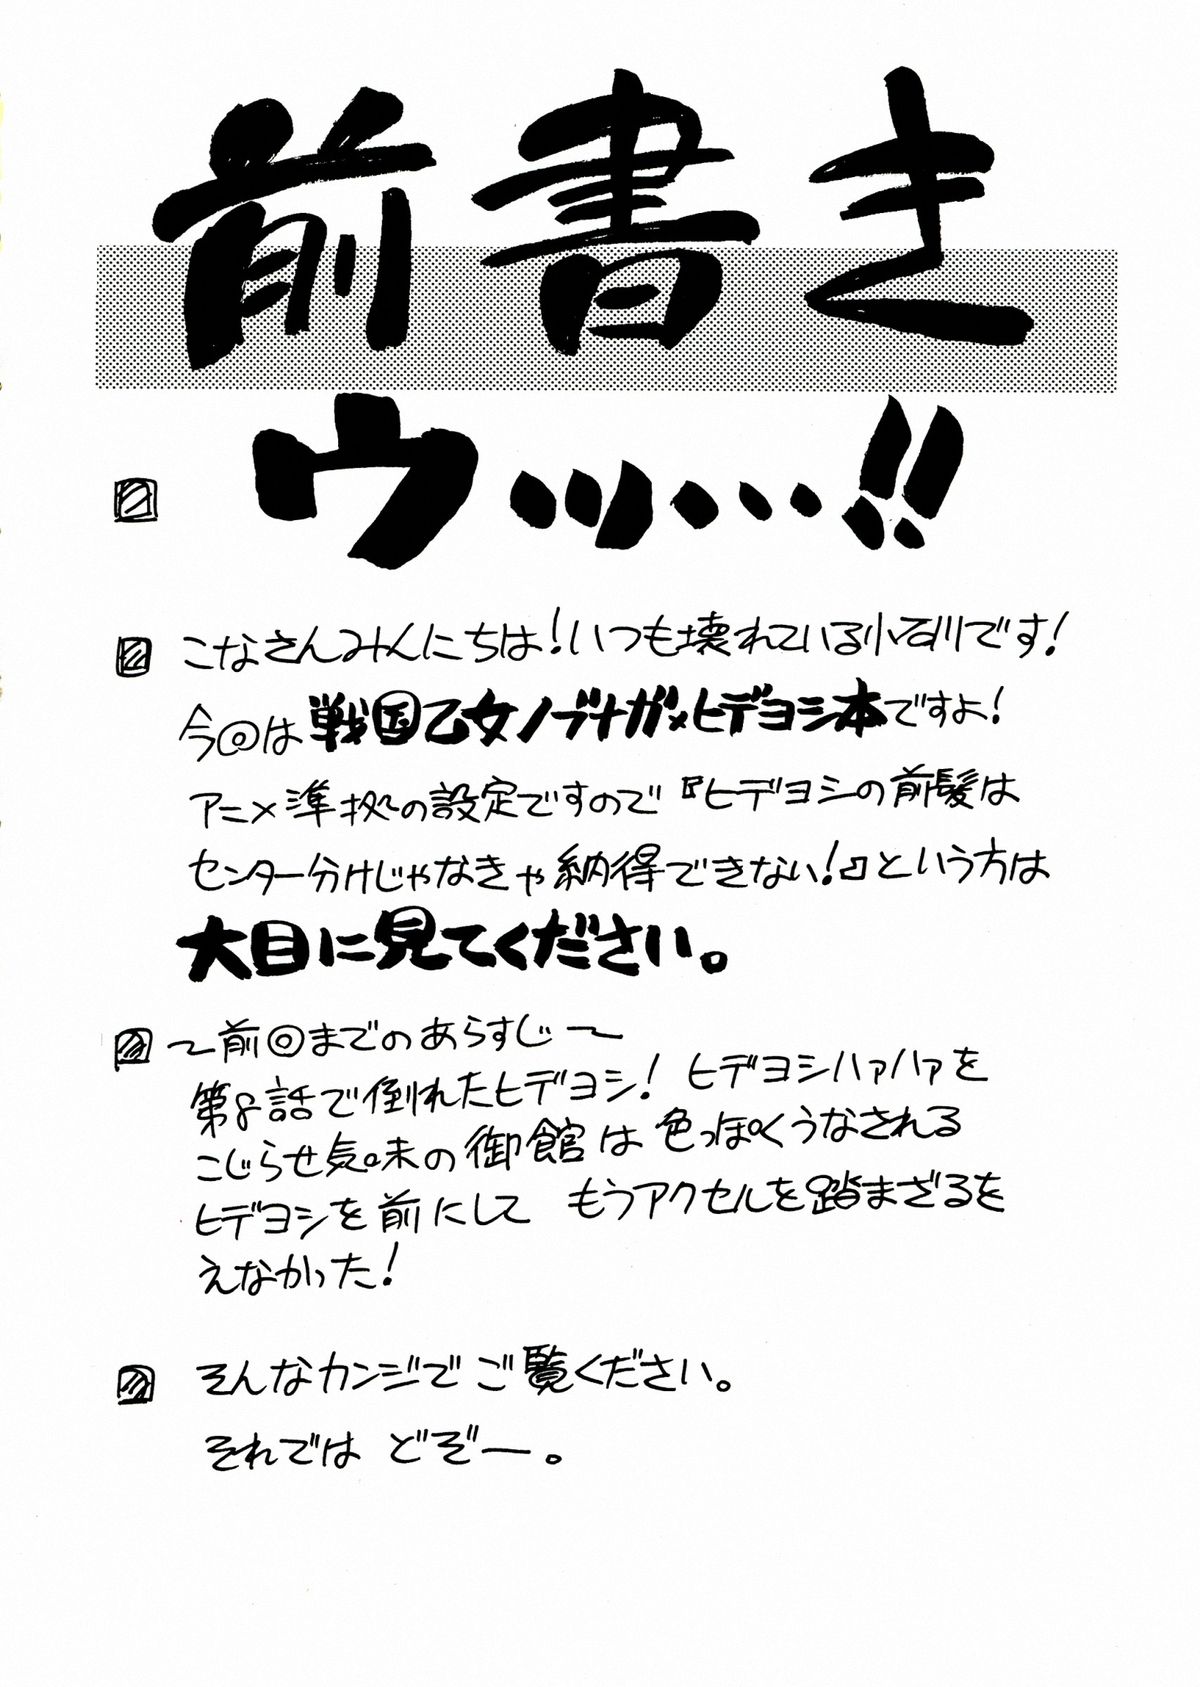 前書き
ウッ…!!
こなさんみんにちは!いつも壊れている小石川です!
今@は戦国乙女ノブナガ×ヒデヨシ本ですよ!
アニメ準拠の設定ですので『ヒデヨシの前髪は
センター分けじゃなきゃ納得できない!』という方は
大目に見てください。
〜前◎までのあらすじ〜
第8話で倒れたヒデヨシ! ヒデヨシハァハァを
こじらせ気味の御館は色っぽくうなされる
ヒデヨシを前にして もうアクセルを踏まざるを
えなかった!
そんなカンジでご覧ください。
それでは どぞー。